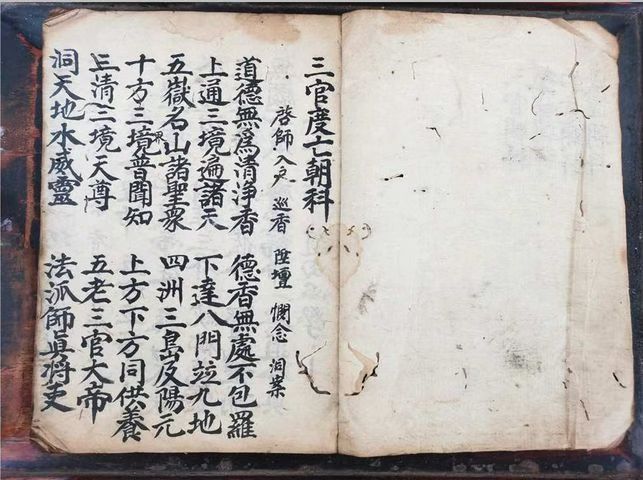 三官度亡朝科
啓師入户 巡香 陞壇 憫念 洞案
道德無爲清淨香 德香無處不包羅
上通三境遍諸天 下達八門竝九地
五嶽名山諸聖衆 四洲三島及陽元
十方三境普聞知 上方下方同供養
三清三境天尊 五老三官大帝
洞天地水威靈 法派師真將吏